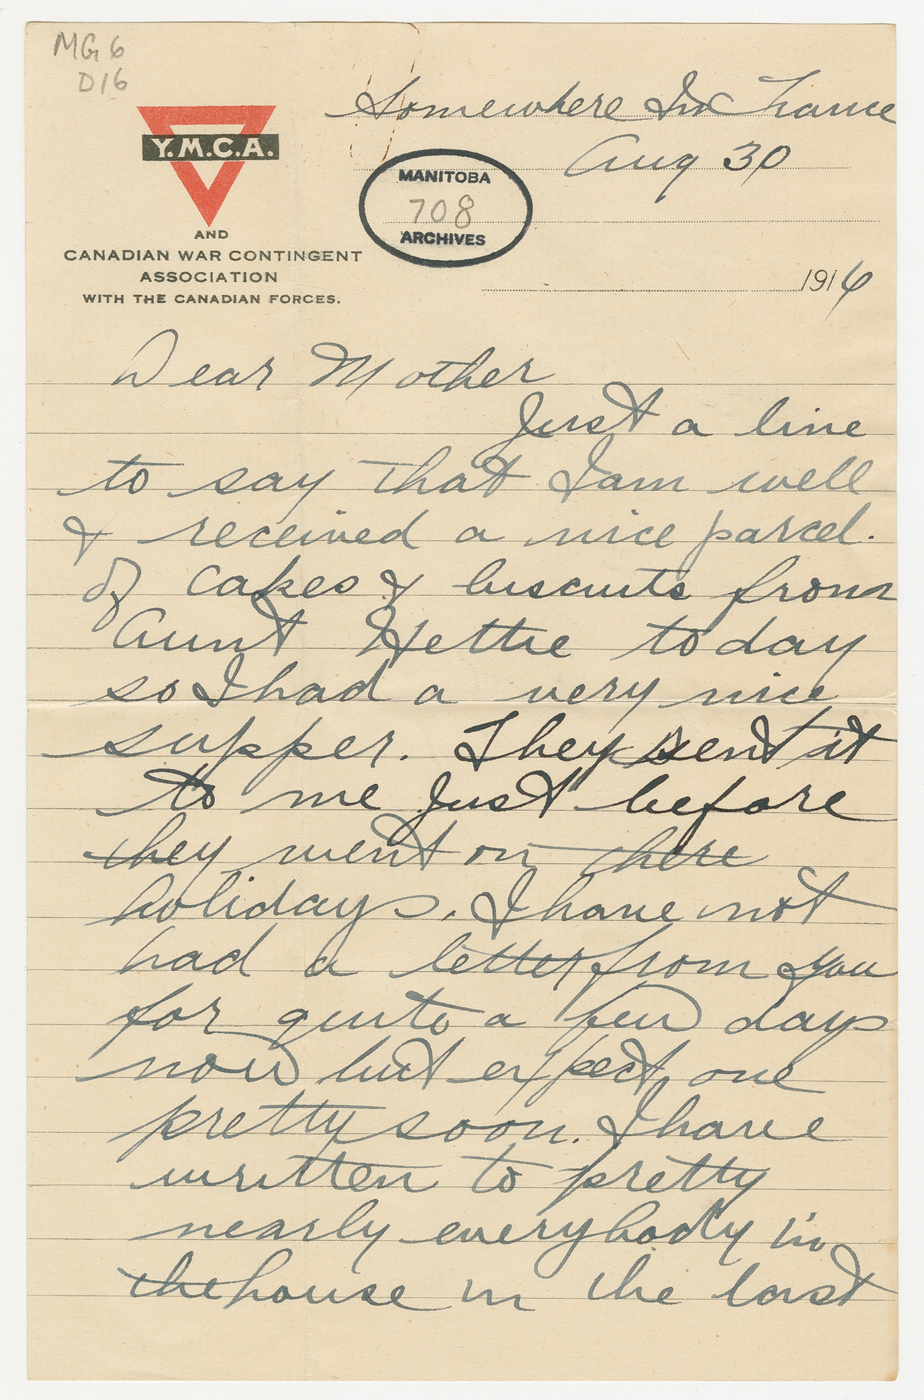 MG6
D16
Somewhere In France
Aug 30
Y.M.C.A.
MANITOBA
708
ARCHIVES
AND
CANADIAN WAR CONTINGENT
ASSOCIATION
WITH THE CANADIAN FORCES.
1916
Dear Mother
Just a line
to say that I am well
& received a nice parcel.
of cakes & biscuits from
Aunt Hettie today
so I had a very nice
supper. They sent it
to me just before
they went on there
holidays. I have not
had a letter from you
for quite a few days
now but expect one
pretty soon. I have
written to pretty
nearly everybody in
the house in the last